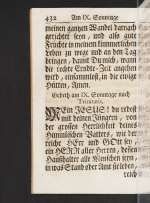 432 Am IX. Sonntage
meinen gantzen Wandel darnach
gerichtet seyn, und also gute
Früchte in meinem himmlischen
Leben zu und an den Tag
bringen, damit Du mich, wann
die rechte Erndte-Zeit angehen
wird, einsammlest, in die ewige
Hütten, Amen.
Gebeth am IX. Sonntage nach
Trinitatis.
MEin JESUS! du redest
mit deinen Jüngern, von
der grossen Herrlichkeit deines
Himmlischen Vatters, wie der
reiche HErr und GOtt sey,
ein HERR aller Herren, dessen
Haußhalter alle Menschen seyn,
in was Stand oder Amt sie leben,
reich